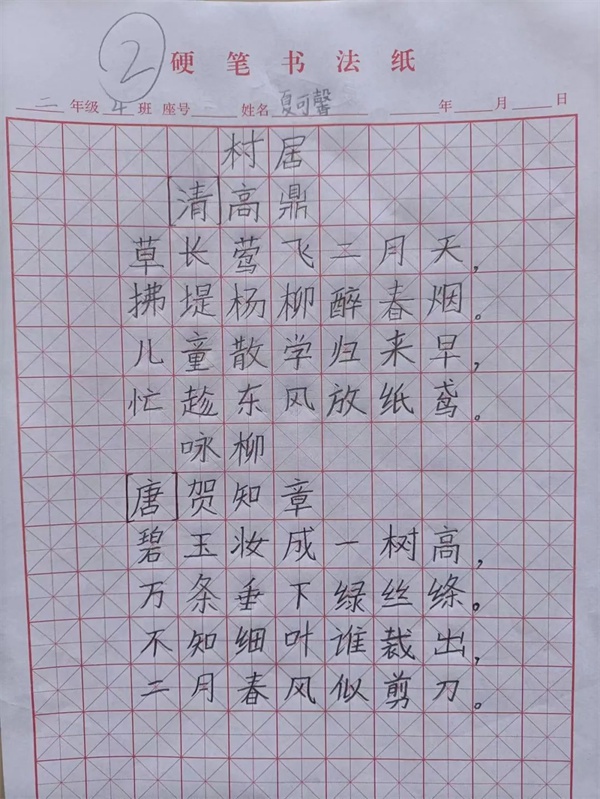 ②
硬笔书法纸
二年级 4班 座号 姓名 夏可馨 年 月 日
村居
[清]高鼎
草长莺飞二月天，
拂堤杨柳醉春烟。
儿童散学归来早，
忙趁东风放纸鸢。
咏柳
[唐]贺知章
碧玉妆成一树高，
万条垂下绿丝绦。
不知细叶谁裁出，
二月春风似剪刀。